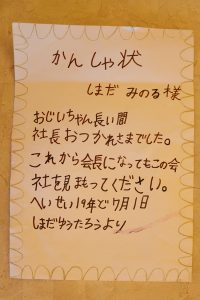 かんしゃ状
しまだ みのる様
おじいちゃん長い間
社長おつかれさまでした。
これから会長になってもこの会
社を見まもってください。
へいせい19年で7月1日
しまだゆうたろうより